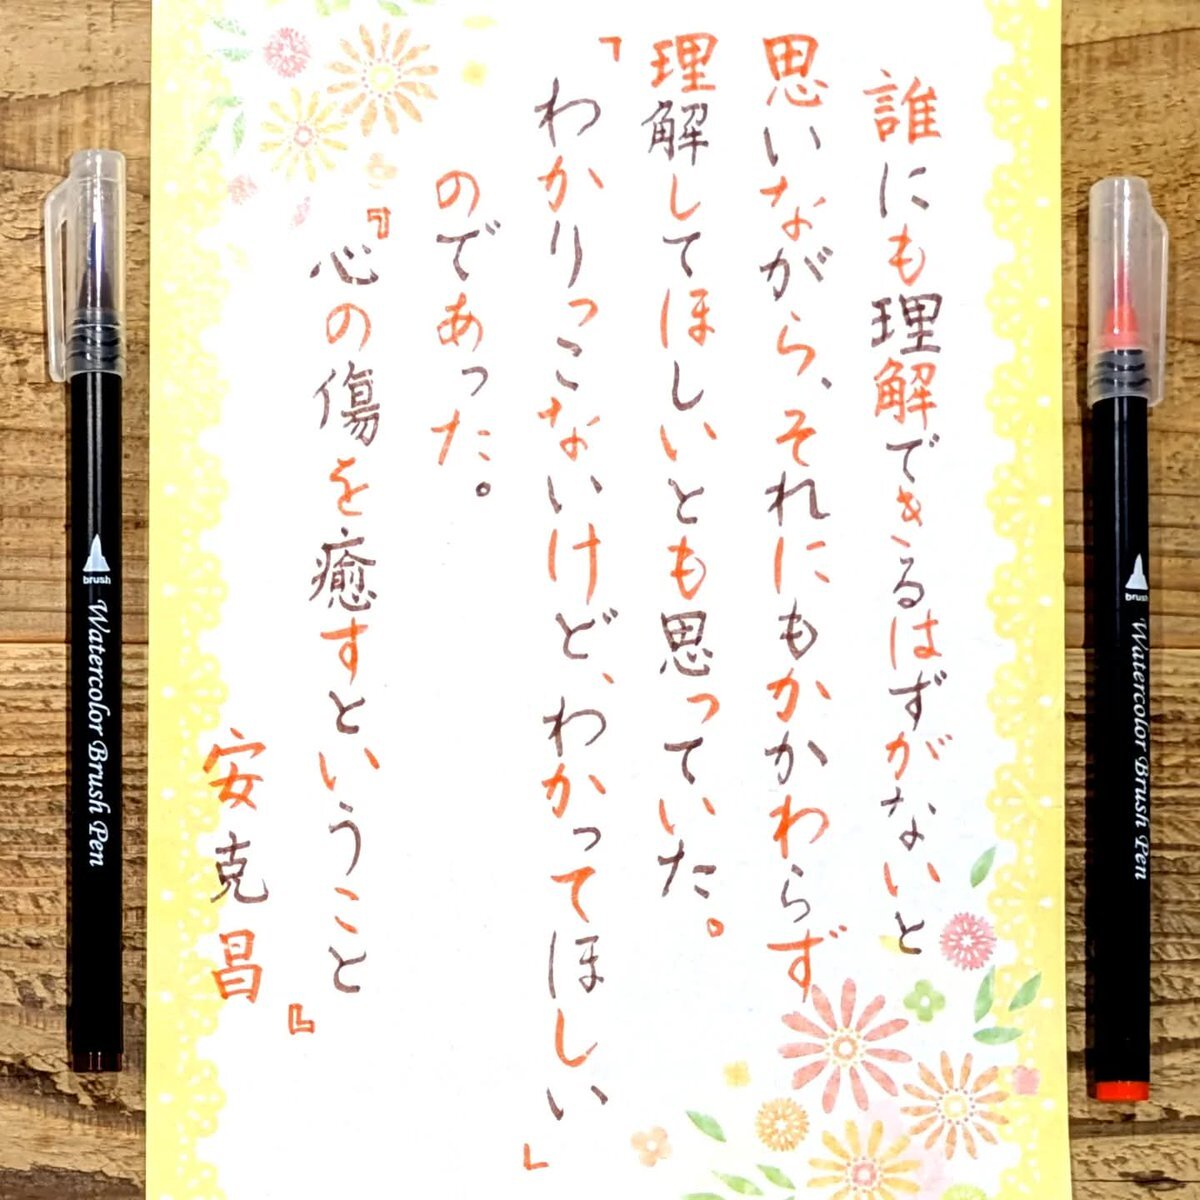 誰にも理解できるはずがないと
思いながら、それにもかかわらず
理解してほしいとも思っていた。
「わかりっこないけど、わかってほしい」
のであった。
『心の傷を癒すということ』
安克昌
brush Watercolor Brush Pen
brush Watercolor Brush Pen